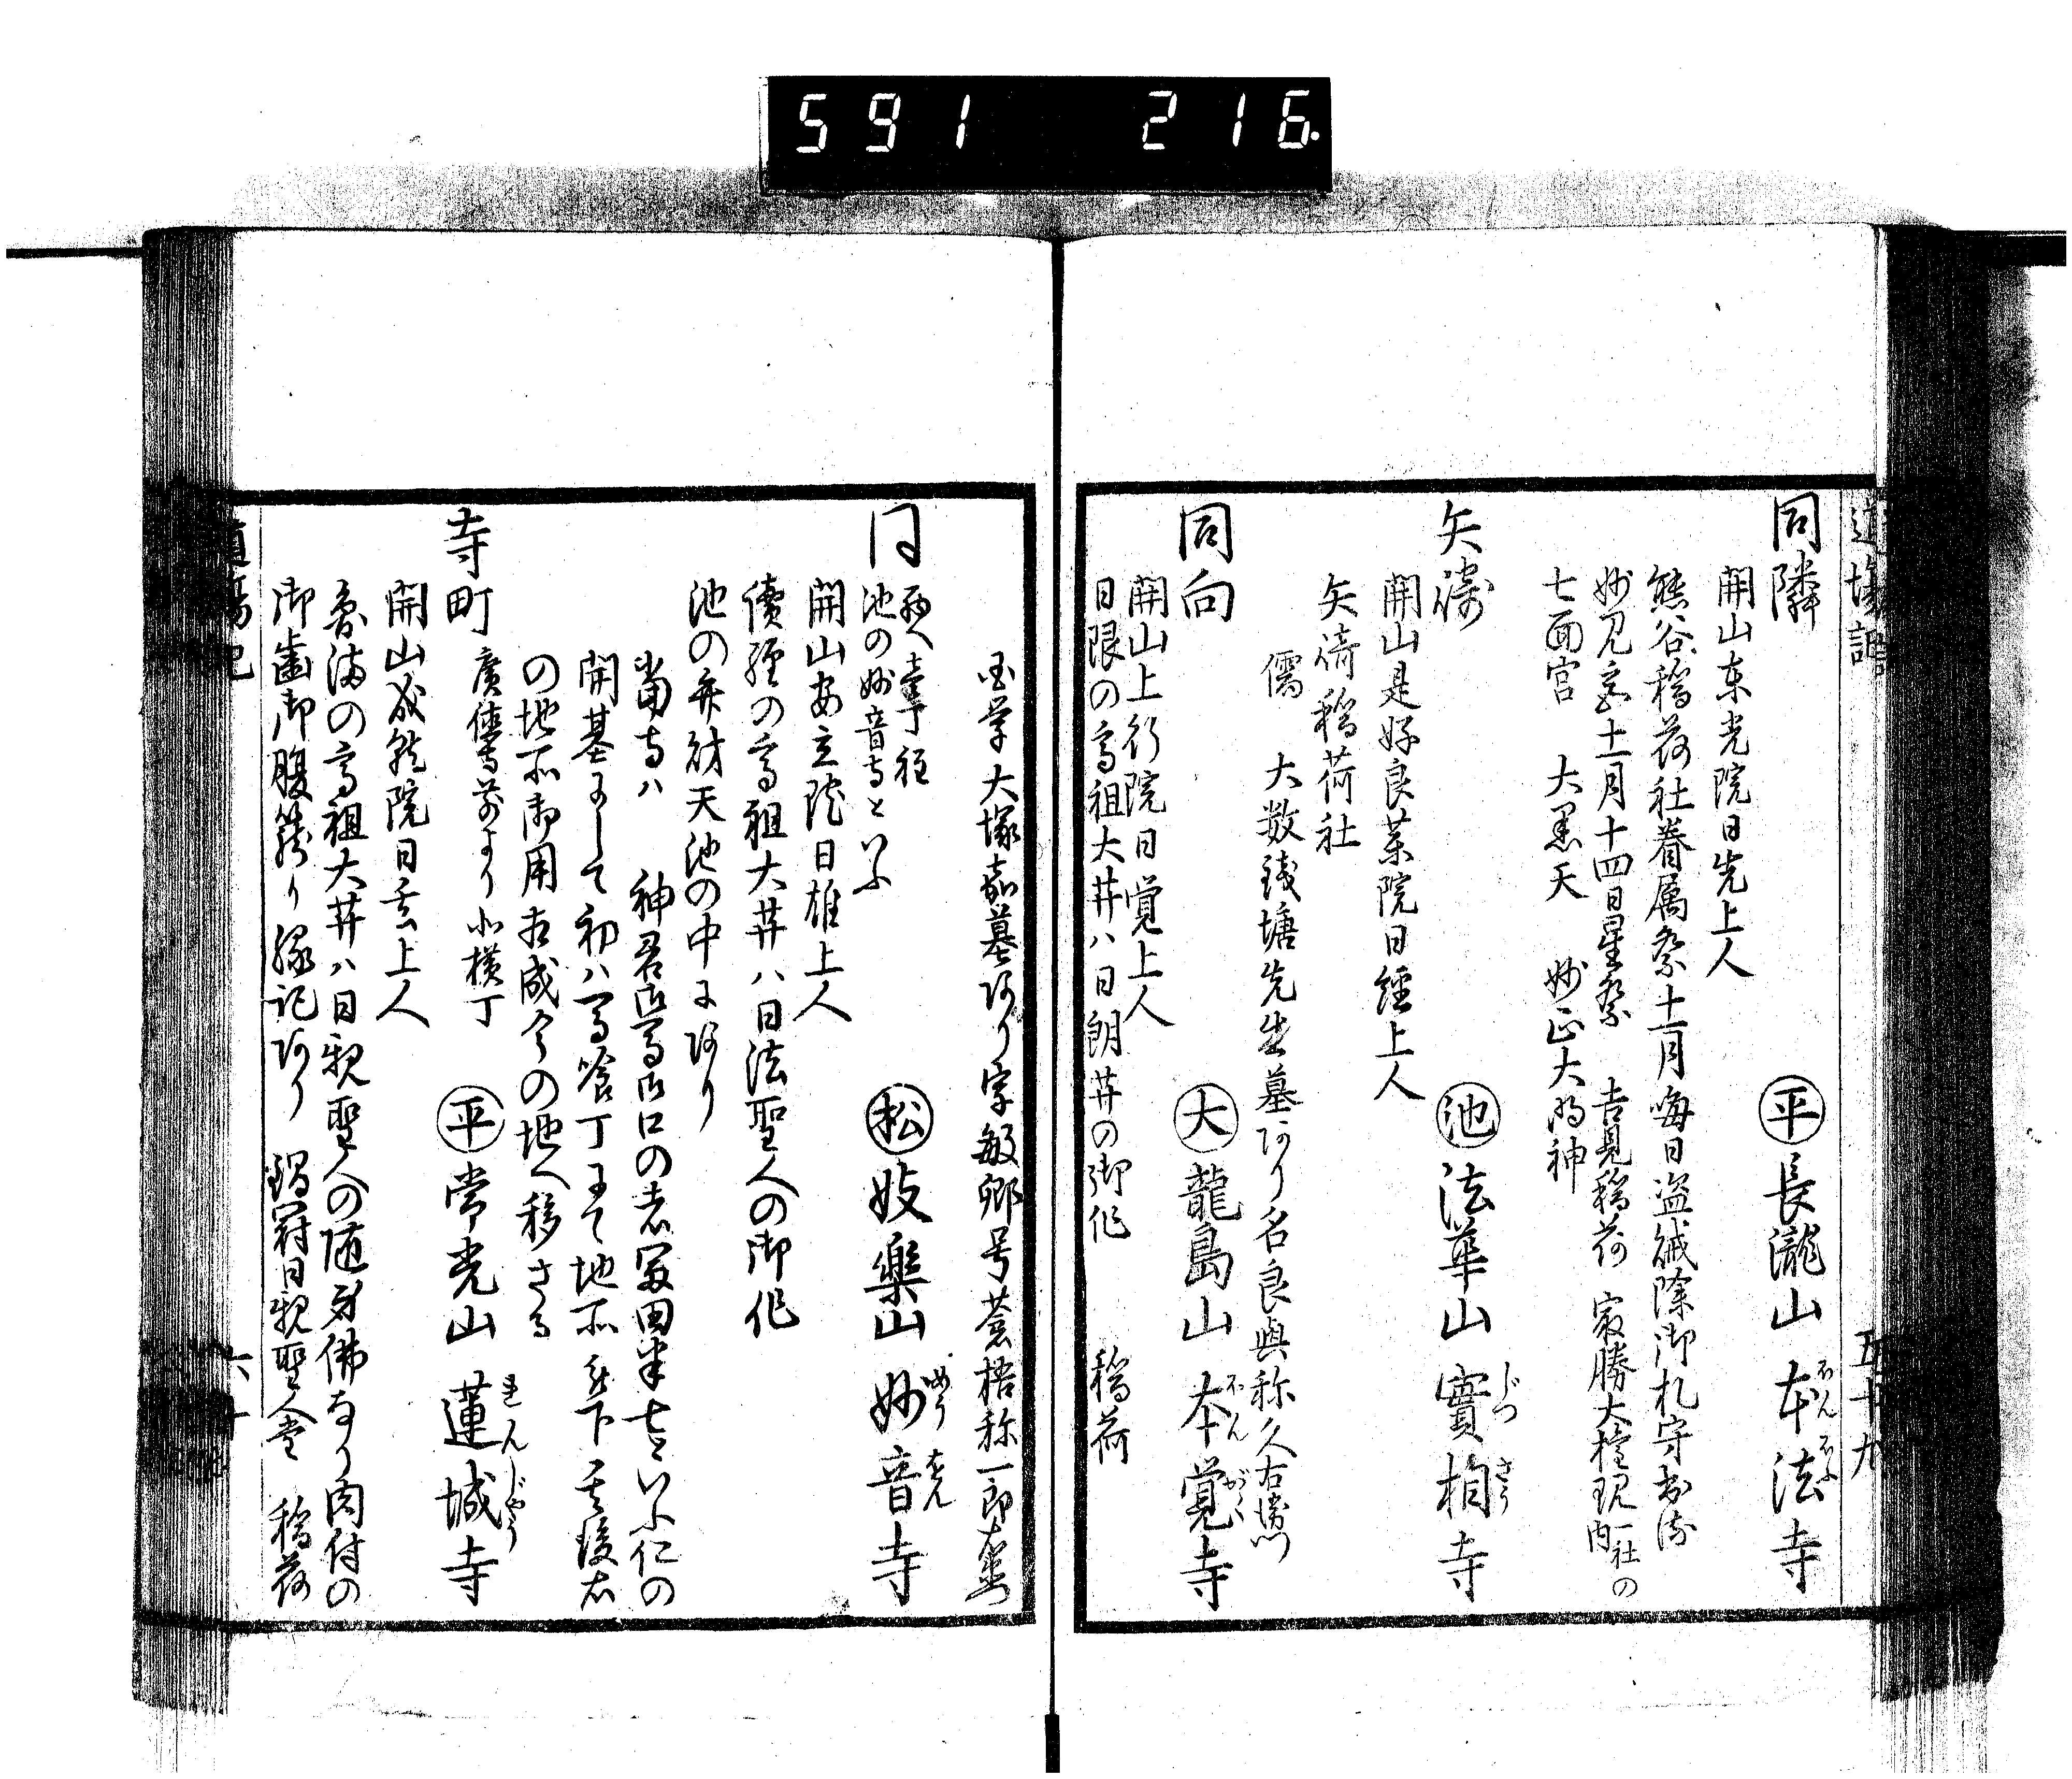 591 216
道場記 五十九
同隣 ㊥平 長瀧山 本法寺
ほん ほふ
開山東光院日先上人
熊谷稲荷社眷属祭十一月晦日盗賊除御札守出ル
妙見宮十一月十四日星祭 吉見稲荷 最勝大権現 一社の内
七面宮 大黒天 妙正大明神
矢満 池 法華山 實相寺
じつ さう
開山是好良薬院日經上人
矢満稲荷社
儒 大数銭塘先生墓あり名良與称久右衛門
同向 大 龍島山 本覚寺
ほん がく
開山上行院日覚上人
日限の高祖大井ハ日朗井の御作 稲荷
国学大塚嘉墓あり字敏卿号蒼梧称一郎右衛門
同 松 妓樂山 妙音寺
めう おん
池の妙音寺といふ
開山安立院日雄上人
讀經の高祖大井ハ日法聖人の御作
池の弁財天池の中にあり
当寺ハ 神君御馬御口の者冨田半七といふ仁の
開基にして初ハ馬喰丁にて地所被下其後右
の地所御用相成今の地へ移さる
寺町 廣徳寺前より小横丁 平 常光山 蓮城寺
れん じやう
開山成就院日玄上人
厄満の高祖大井ハ日親聖人の随身佛なり肉付の
御歯御腹籠り縁記あり 鍋冠日親聖人堂 稲荷
道場記 六十